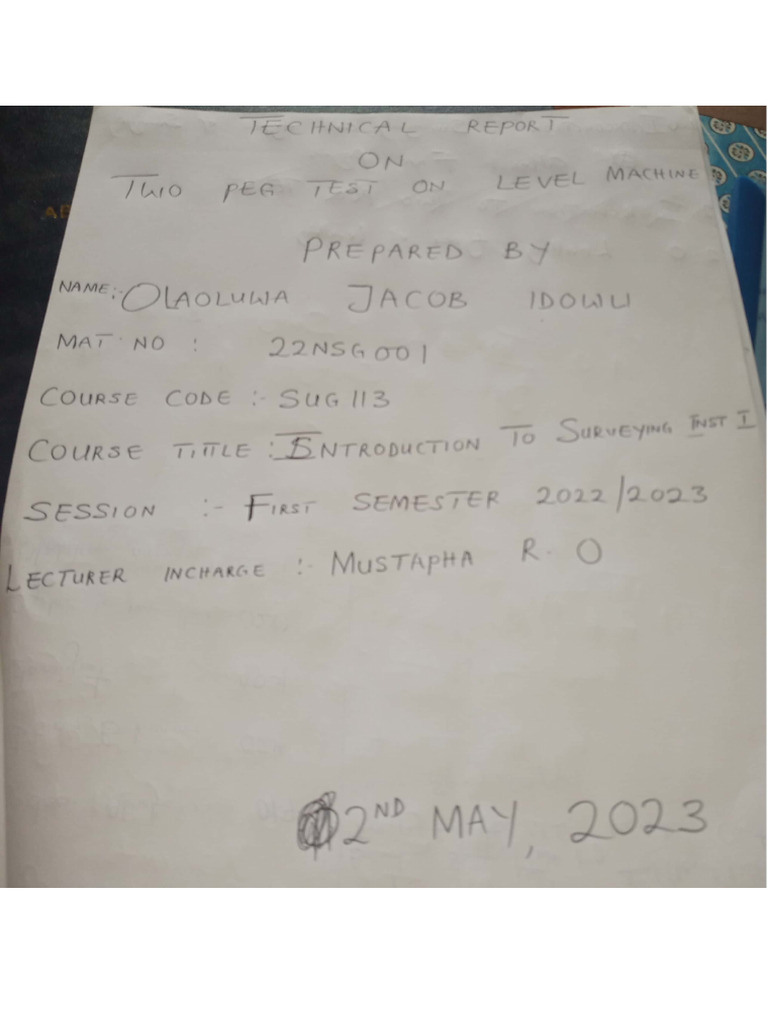 TECHNICAL REPORT
ON
TWO PEG TEST ON LEVEL MACHINE
PREPARED BY
NAME:- OLAOLUWA JACOB IDOWU
MAT NO : 22NSG001
COURSE CODE :- SUG113
COURSE TITTLE : INTRODUCTION TO SURVEYING INST I
SESSION :- FIRST SEMESTER 2022/2023
LECTURER INCHARGE :- MUSTAPHA R. O
2ND MAY, 2023